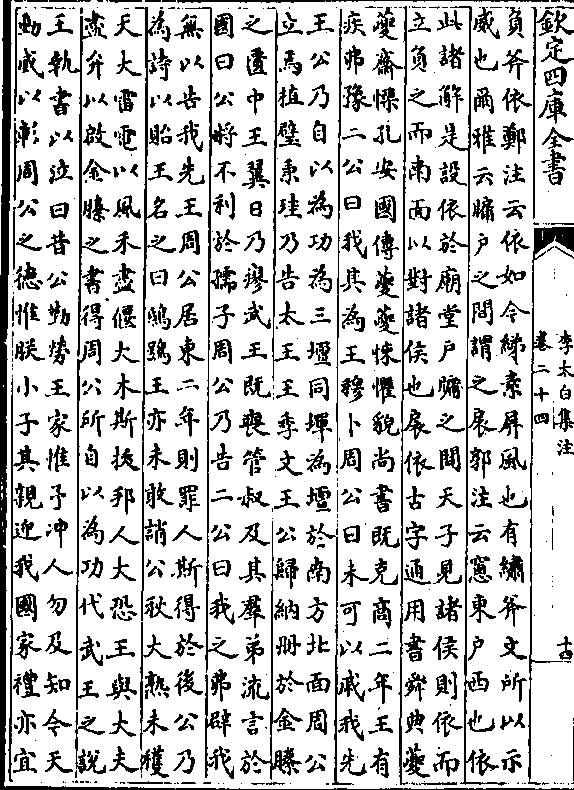 欽定四庫全書
李太白集注
卷二十四
十四
負斧依鄭注云依如今綈素屏風也有繡斧文所以示
威也爾雅云牖戶之間謂之扆郭注云窻東戶西也依
此諸解是設依於廟堂戶牖之間天子見諸侯則依而
立負之而南面以對諸侯也扆依古字通用書舜典夔
夔齋慄孔安國傳夔夔悚懼貌尚書既克商二年王有
疾弗豫二公曰我其為王穆卜周公曰未可以戚我先
王公乃自以為功為三壇同墠為壇於南方北面周公
立焉植璧秉珪乃告太王王季文王公歸納册於金縢
之匱中王翼日乃瘳武王既喪管叔及其羣弟流言於
國曰公將不利於孺子周公乃告二公曰我之弗辟我
無以告我先王周公居東二年則罪人斯得於後公乃
為詩以貽王名之曰鴟鴞王亦未敢誚公秋大熟未穫
天大雷電以風禾盡偃大木斯拔邦人大恐王與大夫
盡弁以啟金縢之書得周公所自以為功代武王之說
王執書以泣曰昔公勤勞王家惟予冲人勿及知今天
動威以彰周公之德惟朕小子其親迎我國家禮亦宜